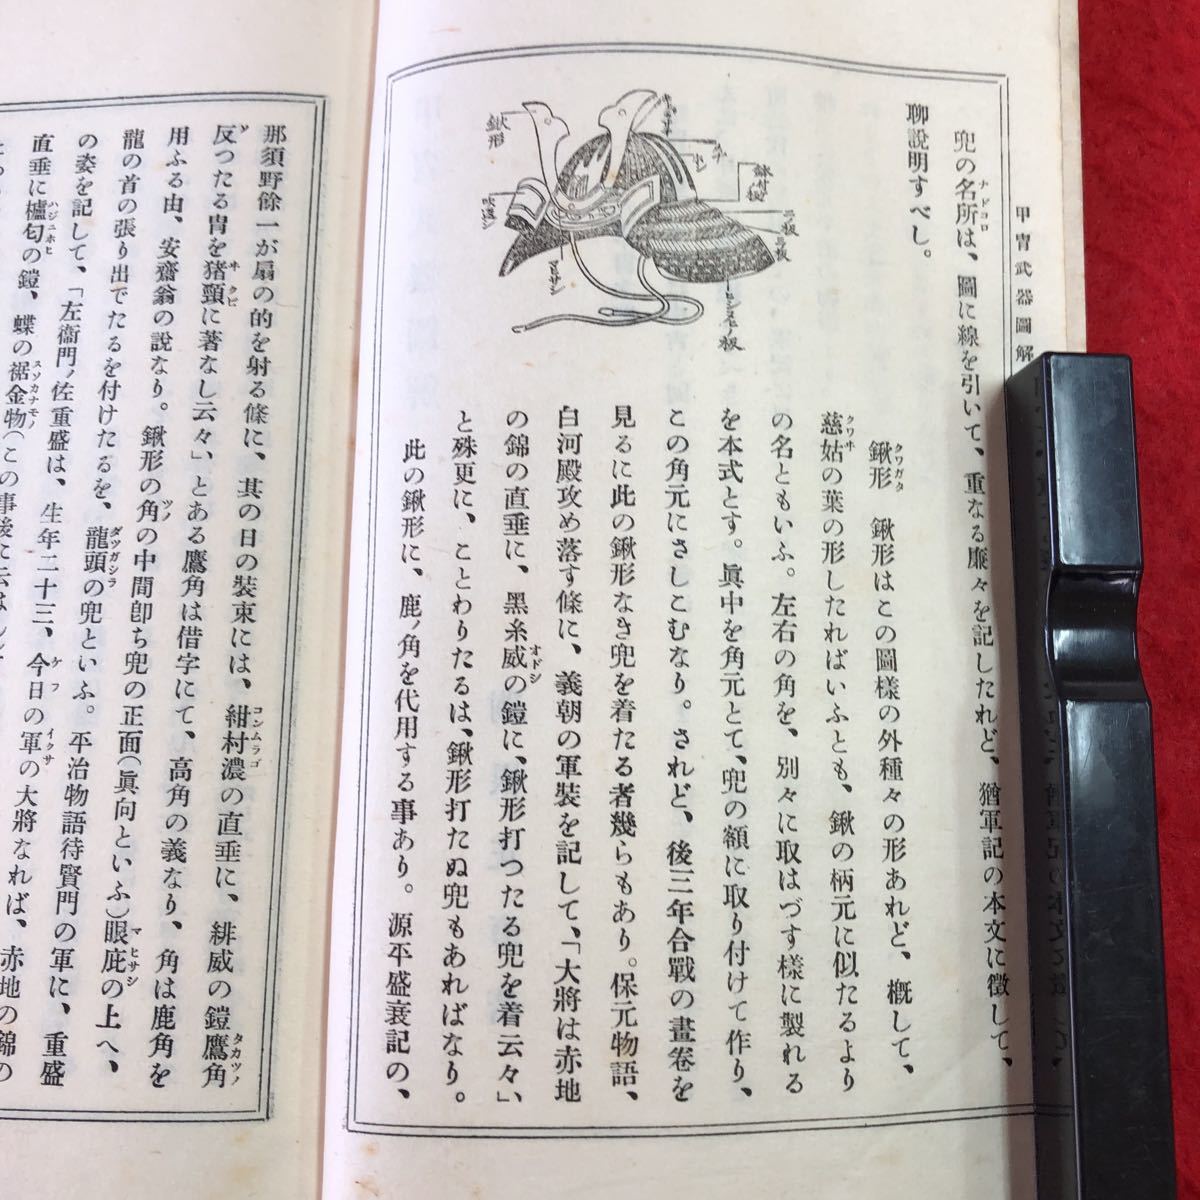 甲冑武器圖解
兜の名所は、圖に線を引いて、重なる廉々を記したれど、猶軍記の本文に徵して、
ナドコロ
聊說明すべし。
鍬形
吹返シ
マビサシ
鉢付板
二ノ板
三ノ板
ヒシヌノ板
鍬形　鍬形はこの圖樣の外種々の形あれど、槪して、
クワガタ
慈姑の葉の形したればいふとも、鍬の柄元に似たるより
クワヰ
の名ともいふ。左右の角を、別々に取はづす樣に製れる
を本式とす。眞中を角元とて、兜の額に取り付けて作り、
この角元にさしこむなり。されど、後三年合戰の畫卷を
見るに此の鍬形なき兜を着たる者幾らもあり。保元物語、
白河殿攻め落す條に、義朝の軍裝を記して、「大將は赤地
の錦の直垂に、黑糸威の鎧に、鍬形打つたる兜を着云々」、
オドシ
と殊更に、ことわりたるは、鍬形打たぬ兜もあればなり。
此の鍬形に、鹿ノ角を代用する事あり。源平盛衰記の、
那須野餘一が扇の的を射る條に、其の日の裝束には、紺村濃の直垂に、緋威の鎧鷹角
コンムラゴ
タカツノ
反つたる冑を猪頸に著なし云々」、とある鷹角は借字にて、高角の義なり、角は鹿角を
ヰクビ
用ふる由、安齋翁の說なり。鍬形の角の中間卽ち兜の正面(眞向といふ)眼庇の上へ、
ツノ
マビサシ
龍の首の張り出でたるを付けたるを、龍頭の兜といふ。平治物語待賢門の軍に、重盛
タツガシラ
の姿を記して、「左衞門ノ佐重盛は、生年二十三、今日の軍の大將なれば、赤地の錦の
ケフ
イクサ
直垂に櫨匂の鎧、蝶の裾金物(この事後に云はん
ハジニホヒ
スソカナモノ